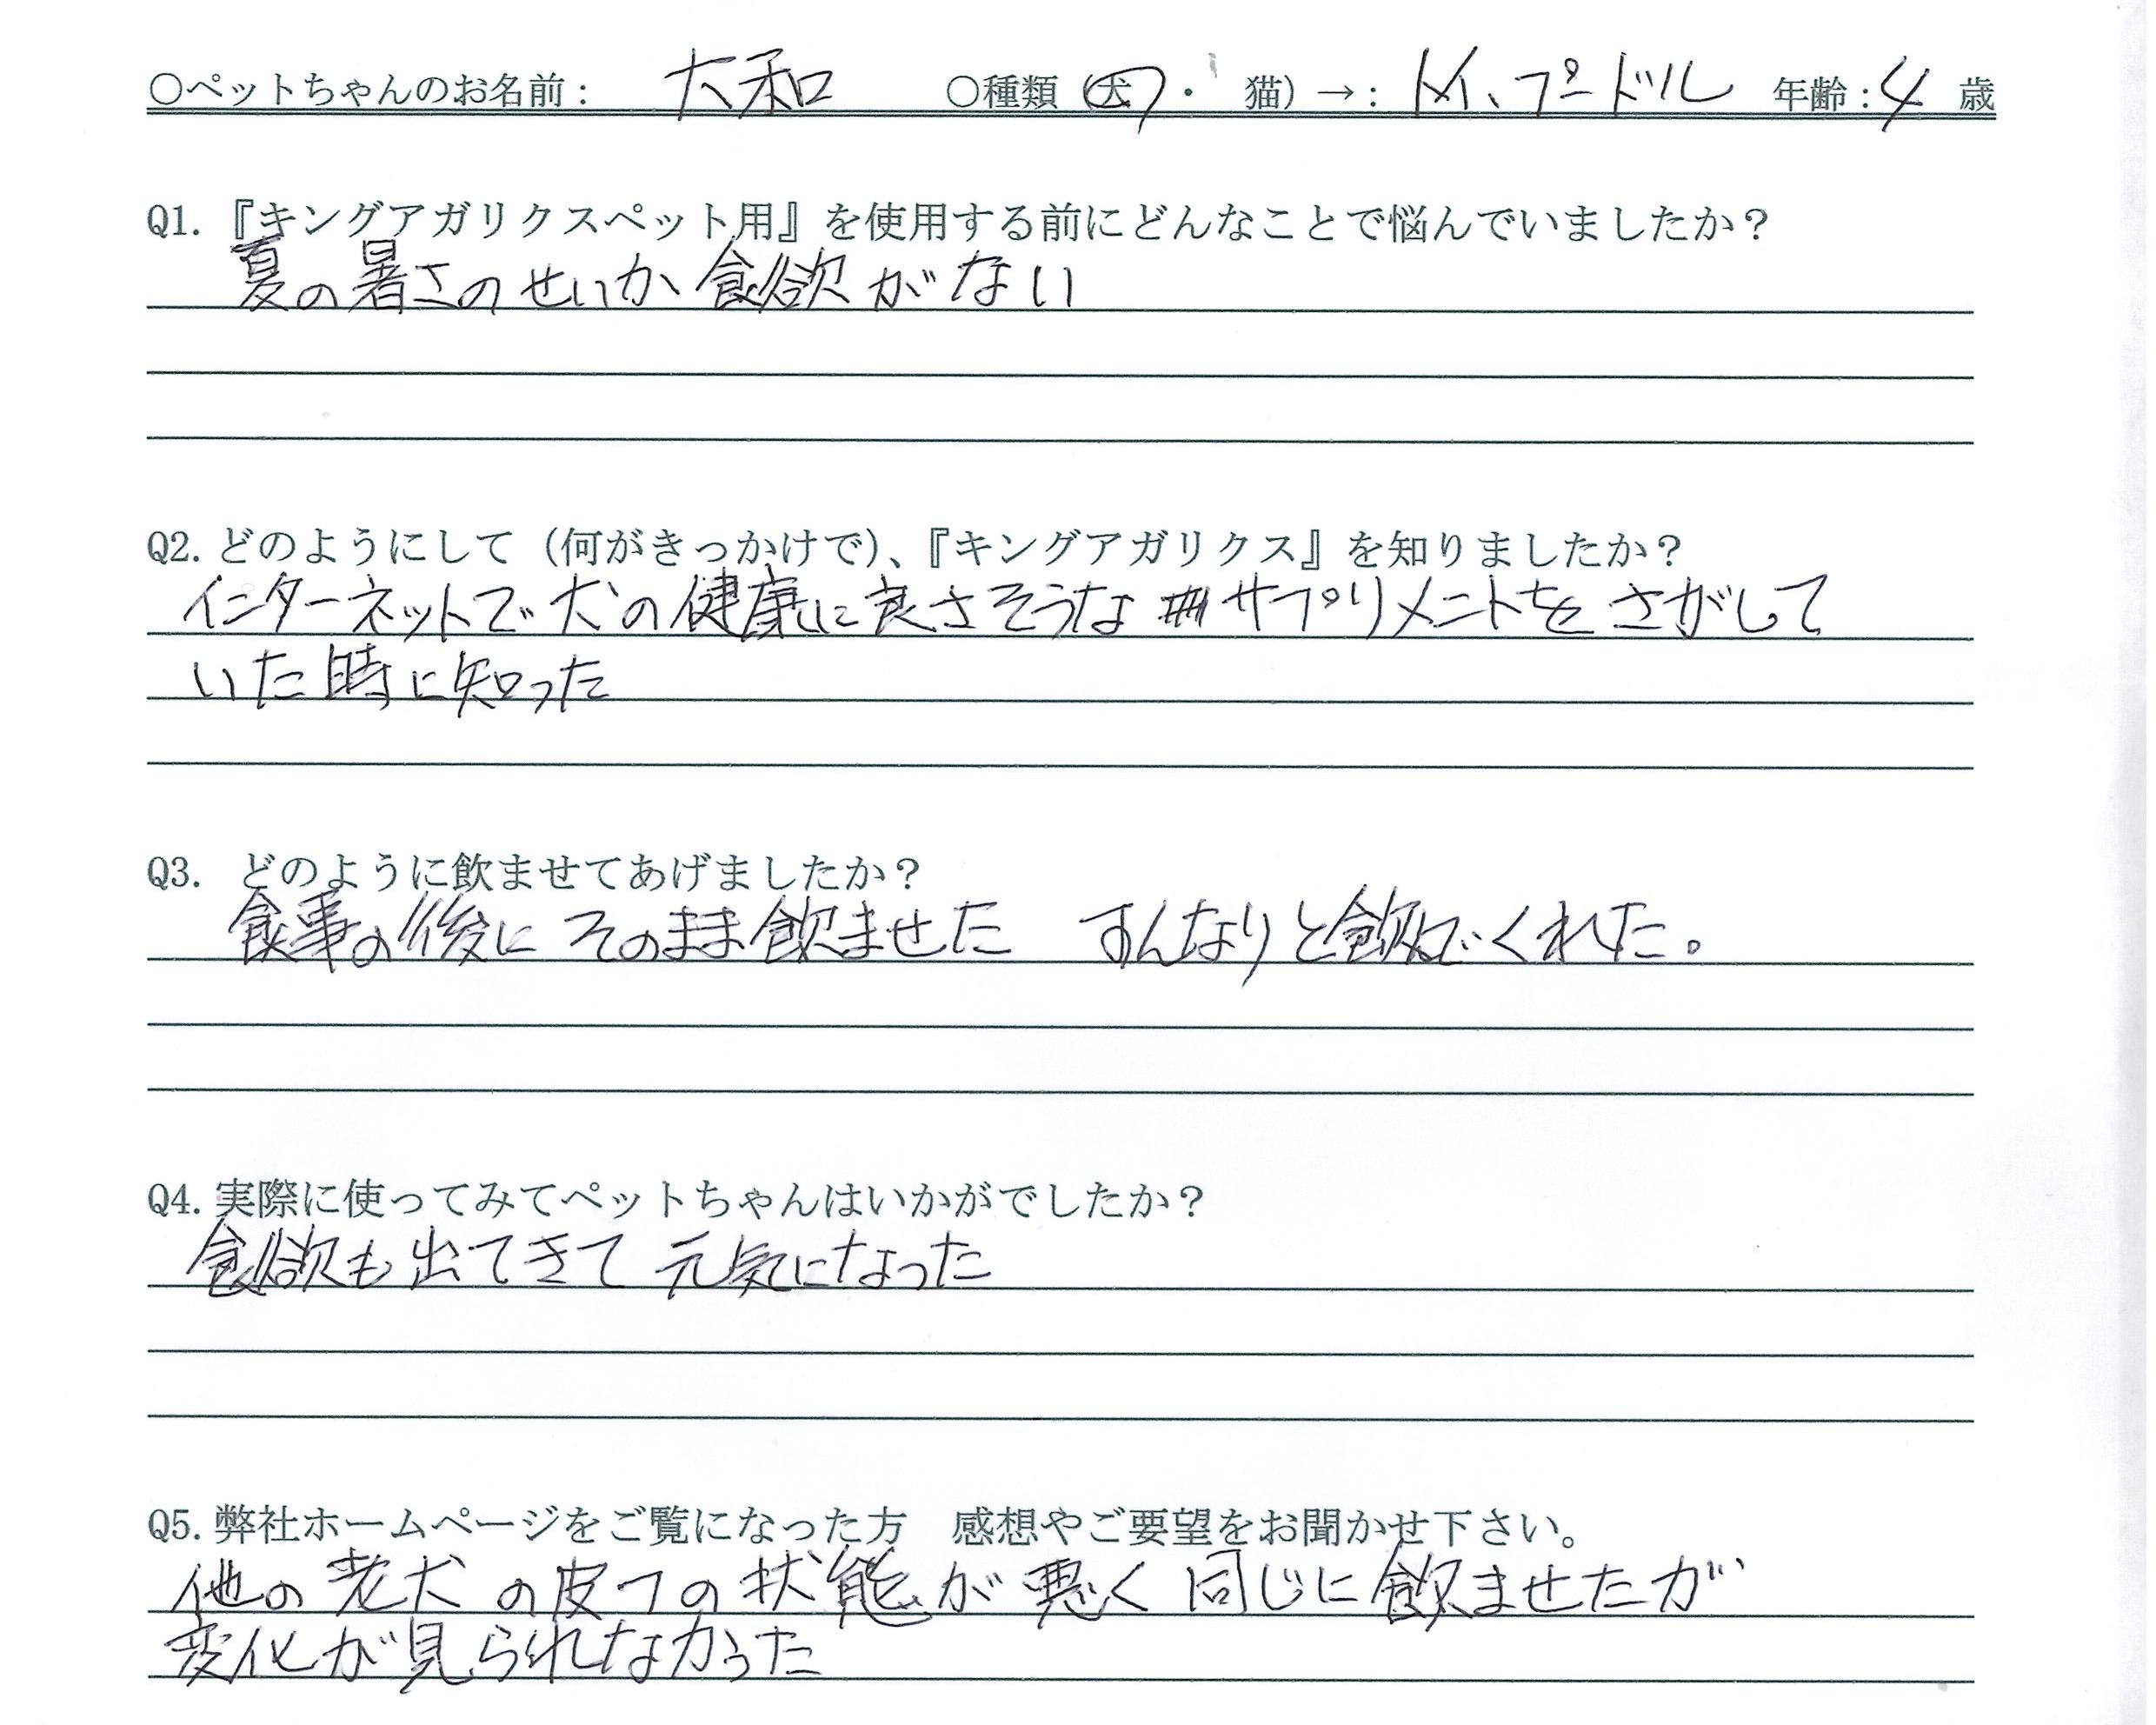 ○ペットちゃんのお名前: 大和 ○種類(犬・猫)→: トイ、プードル 年齢:4歳
Q1.『キングアガリクスペット用』を使用する前にどんなことで悩んでいましたか？
夏の暑さのせいか食欲がない
Q2.どのようにして（何がきっかけで）、『キングアガリクス』を知りましたか？
インターネットで犬の健康に良さそうなサプリメントをさがして
いた時に知った
Q3. どのように飲ませてあげましたか？
食事の後にそのまま飲ませた すんなりと飲んでくれた。
Q4.実際に使ってみてペットちゃんはいかがでしたか？
食欲も出てきて元気になった
Q5.弊社ホームページをご覧になった方 感想やご要望をお聞かせ下さい。
他の老犬の皮フの状態が悪く同じに飲ませたが
変化が見られなかった